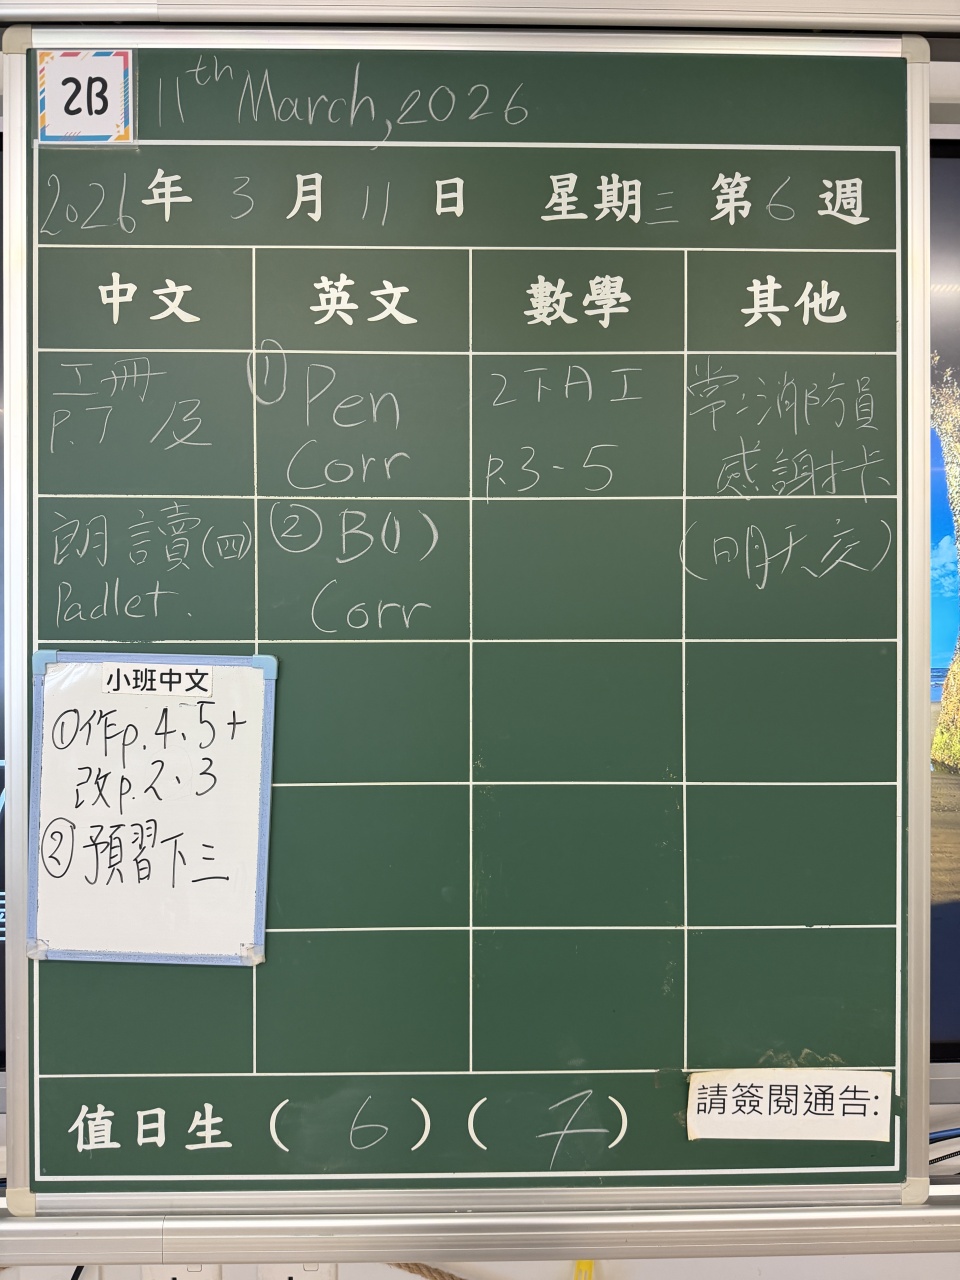 2B
11th March, 2026
2026年3月11日 星期三 第6週
中文 英文 數學 其他
工冊
p.7 及
朗讀(四)
Padlet.
① Pen
Corr
② B(1)
Corr
2下A工
p.3-5
常:消防員
感謝卡
(明天交)
小班中文
①作p.4、5+
改p.2、3
②預習下三
值日生(6)(7)
請簽閱通告: